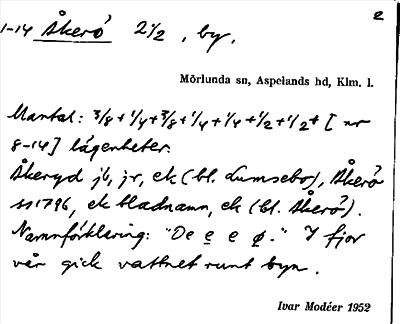 2
1-14 Åkerö 2 1/2, by.
Mörlunda sn, Aspelands hd, Klm. l.
Mantal: 3/8+1/4+3/8+1/4+1/4+1/2+1/2+ [nr
8-14] lägenheter.
Åkeryd jb, jr, ek (bl. Lumsebo), Åkerö
1796, ek bladnamn, ek (bl. Åkerö).
Namnförklaring: "De e e ø." I fjor
vår gick vattnet runt byn.
Ivar Modéer 1952